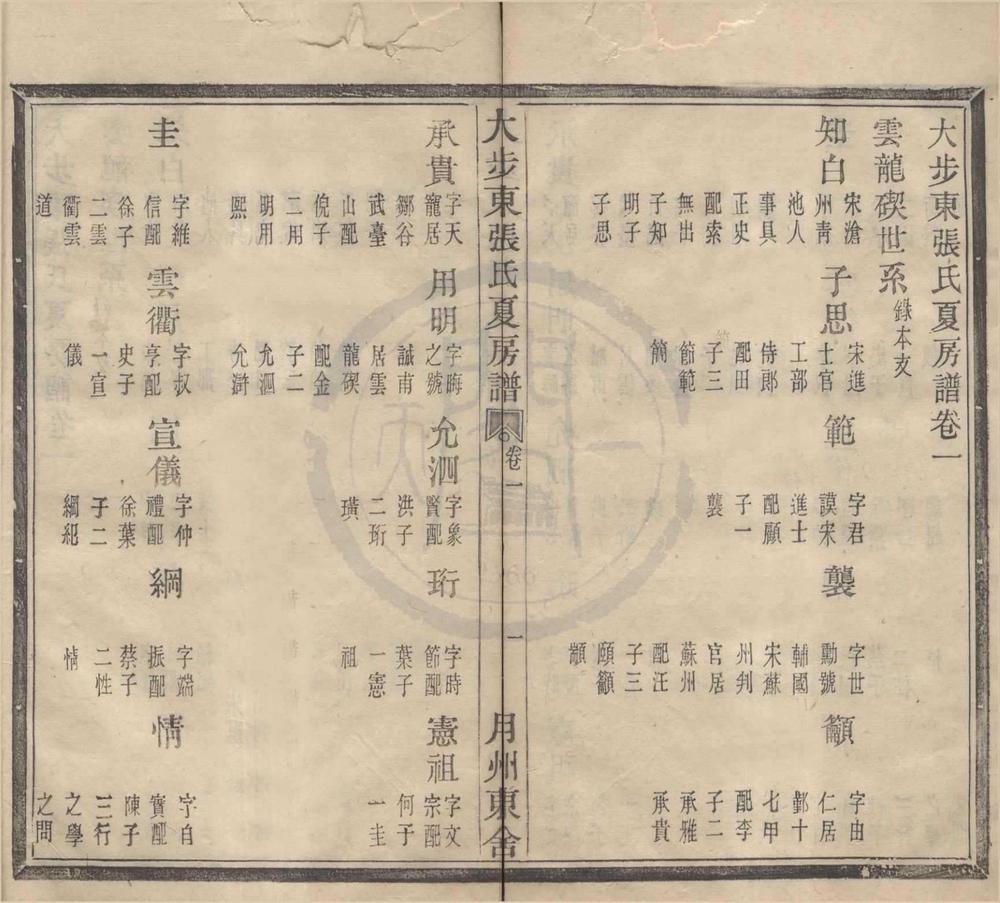 大步東張氏夏房譜卷一
雲龍碶世系錄本支
知白
宋滄
州青
池人
事具
正史
配索
無出
子知
明子
子思
子思
宋進
士官
工部
侍郎
配田
子三
節範
簡
範
字君
謨宋
進士
配顧
子一
襲
襲
字世
勳號
輔國
宋蘇
州判
官居
蘇州
配汪
子三
頤籲
顓
籲
字由
仁居
鄞十
七甲
配李
子二
承雅
承貴
大步東張氏夏房譜 卷一 一 月州東舍
承貴
字天
寵居
鄒谷
武臺
山配
倪子
二用
明用
熙
用明
字晦
之號
誠甫
居雲
龍碶
配金
子二
允泗
允滸
允泗
字象
賢配
洪子
二珩
璜
珩
字時
節配
葉子
一憲
祖
憲祖
字文
宗配
何子
一圭
圭
字維
信配
徐子
二雲
衢雲
道
雲衢
字叔
亨配
史子
一宣
儀
宣儀
字仲
禮配
徐葉
子二
綱紀
綱
字端
振配
蔡子
二性
情
情
字自
實配
陳子
三行
之學
之問